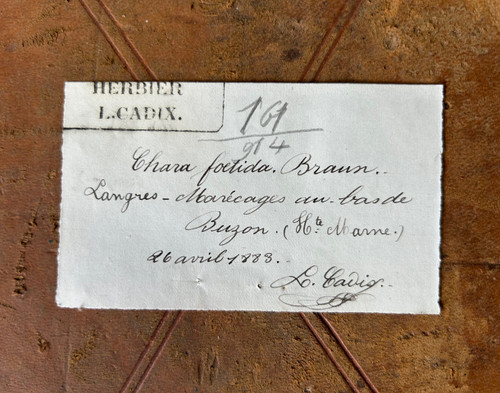 HERBIER
L.CADIX.
161
914
Chara fœtida. Braun.
Langres - Marécages au bas de
Buzon. (Hte Marne.)
26 avril 1888.
L. Cadix.